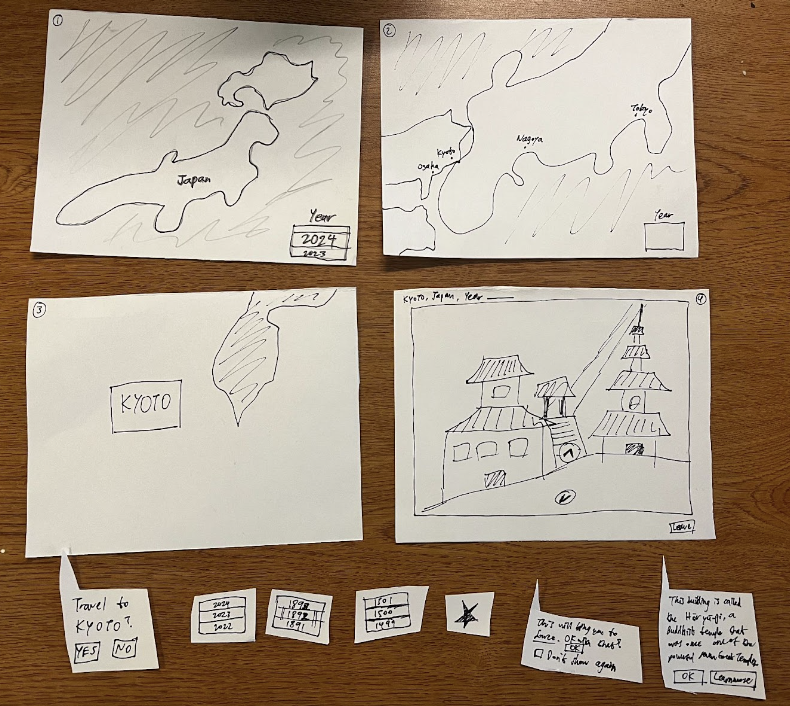 ①
Japan
Year
2024
2023
②
Tokyo
Nagoya
Kyoto
Osaka
Year
③
KYOTO
④
KYOTO, Japan, Year
Leave
Travel to
KYOTO?
YES NO
2024
2023
2022
1892
1891
1501
1500
1499
This will bring you to
OK with that?
OK
Don't show again
This building is called
the a
Buddhist temple that
was once one of the
powerful Temples
OK Learn more